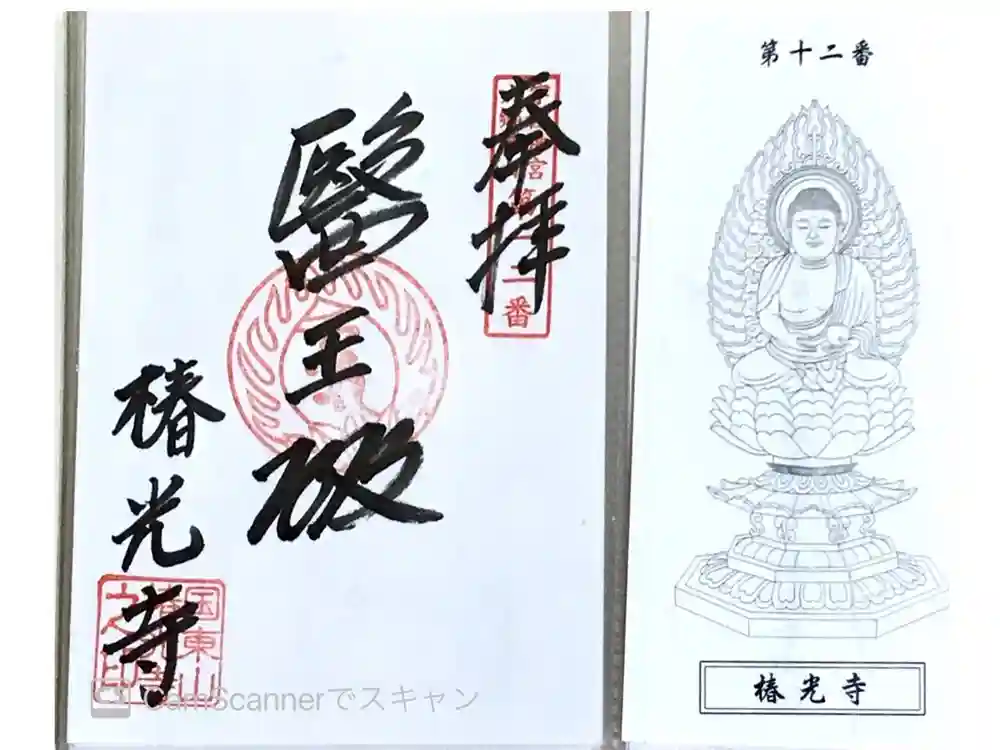 奉拝
番
醫王殿
椿光寺
国東山
椿光寺
之印
CamScannerでスキャン
第十二番
椿光寺